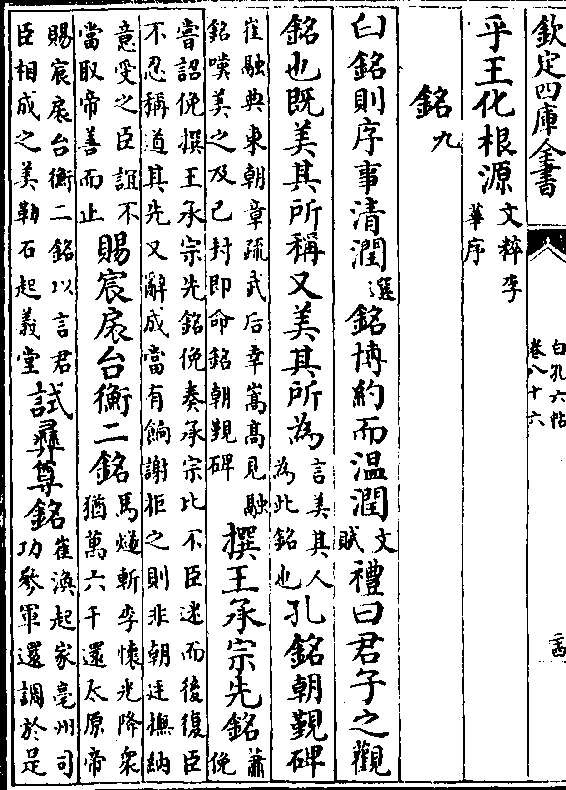 欽定四庫全書
白孔六帖
卷八十六
乎王化根源文粹李
華序
銘九
白銘則序事清潤選銘博約而温潤文
賦禮曰君子之觀
銘也既美其所稱又美其所為言美其人
為此銘也孔銘朝覲碑
崔融典東朝章疏武后幸嵩高見融
銘嘆美之及已封即命銘朝覲碑撰王承宗先銘蕭
俛
嘗詔俛撰王承宗先銘俛奏承宗比不臣迷而後復臣
不忍稱道其先又辭成當有餉謝拒之則非朝廷撫納
意受之臣誼不
當取帝善而止賜宸扆台衡二銘馬燧斬李懷光降衆
猶萬六千還太原帝
賜宸扆台衡二銘以言君
臣相成之美勒石起義堂試彞尊銘崔渙起家亳州司
功參軍還調於是